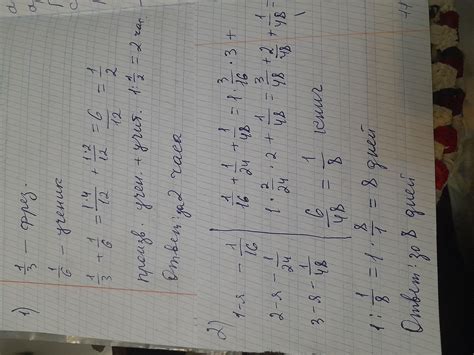 1) 1/3 – фрез.
1/6 – ученик
1/3 + 1/6 = 1·4/12 + 1·2/12 = 6/12 = 1/2
произв. учен. + учит. 1:1/2 = 2 час.
Ответ: за 2 часа
2)
1-я – 1/16
2-я – 1/24
3-я – 1/48
1/16 + 1/24 + 1/48 = 1·3/16·3 +
1·2/24·2 + 1/48 = 3/48 + 2/48 + 1/48
6/48 = 1/8 книг
1 : 1/8 = 1 · 8/1 = 8 дней
Ответ: за 8 дней